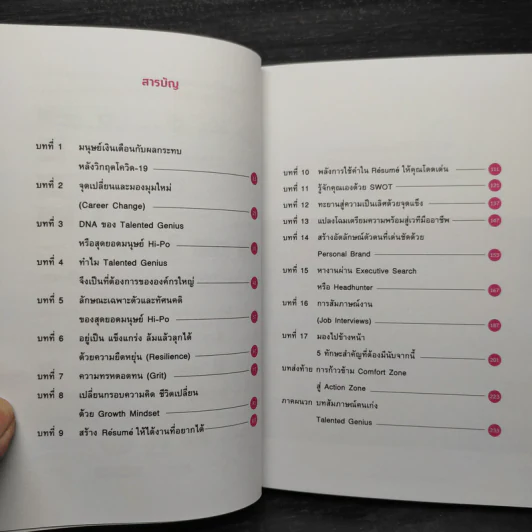 สารบัญ
บทที่ 1 มนุษย์เงินเดือนกับผลกระทบ
หลังวิกฤตโควิด-19
บทที่ 2 จุดเปลี่ยนและมองมุมใหม่
(Career Change)
บทที่ 3 DNA ของ Talented Genius
หรือสุดยอดมนุษย์ Hi-Po
บทที่ 4 ทำไม Talented Genius
จึงเป็นที่ต้องการขององค์กรใหญ่
บทที่ 5 ลักษณะเฉพาะตัวและทัศนคติ
ของสุดยอดมนุษย์ Hi-Po
บทที่ 6 อยู่เป็น แข็งแกร่ง ล้มแล้วลุกได้
ด้วยความยืดหยุ่น (Resilience)
บทที่ 7 ความทรหดอดทน (Grit)
บทที่ 8 เปลี่ยนกรอบความคิด ชีวิตเปลี่ยน
ด้วย Growth Mindset
บทที่ 9 สร้าง Résumé ให้ได้งานที่อยากได้
บทที่ 10 พลังการใช้คำใน Résumé ให้คุณโดดเด่น
บทที่ 11 รู้จักคุณเองด้วย SWOT
บทที่ 12 ทะยานสู่ความเป็นเลิศด้วยจุดแข็ง
บทที่ 13 แปลงโฉมเตรียมความพร้อมสู่เวทีมืออาชีพ
บทที่ 14 สร้างอัตลักษณ์ตัวตนที่เด่นชัดด้วย
Personal Brand
บทที่ 15 หางานผ่าน Executive Search
หรือ Headhunter
บทที่ 16 การสัมภาษณ์งาน
(Job Interviews)
บทที่ 17 มองไปข้างหน้า
5 ทักษะสำคัญที่ต้องมีนับจากนี้
บทส่งท้าย การก้าวข้าม Comfort Zone
สู่ Action Zone
ภาคผนวก บทสัมภาษณ์คนเก่ง
Talented Genius